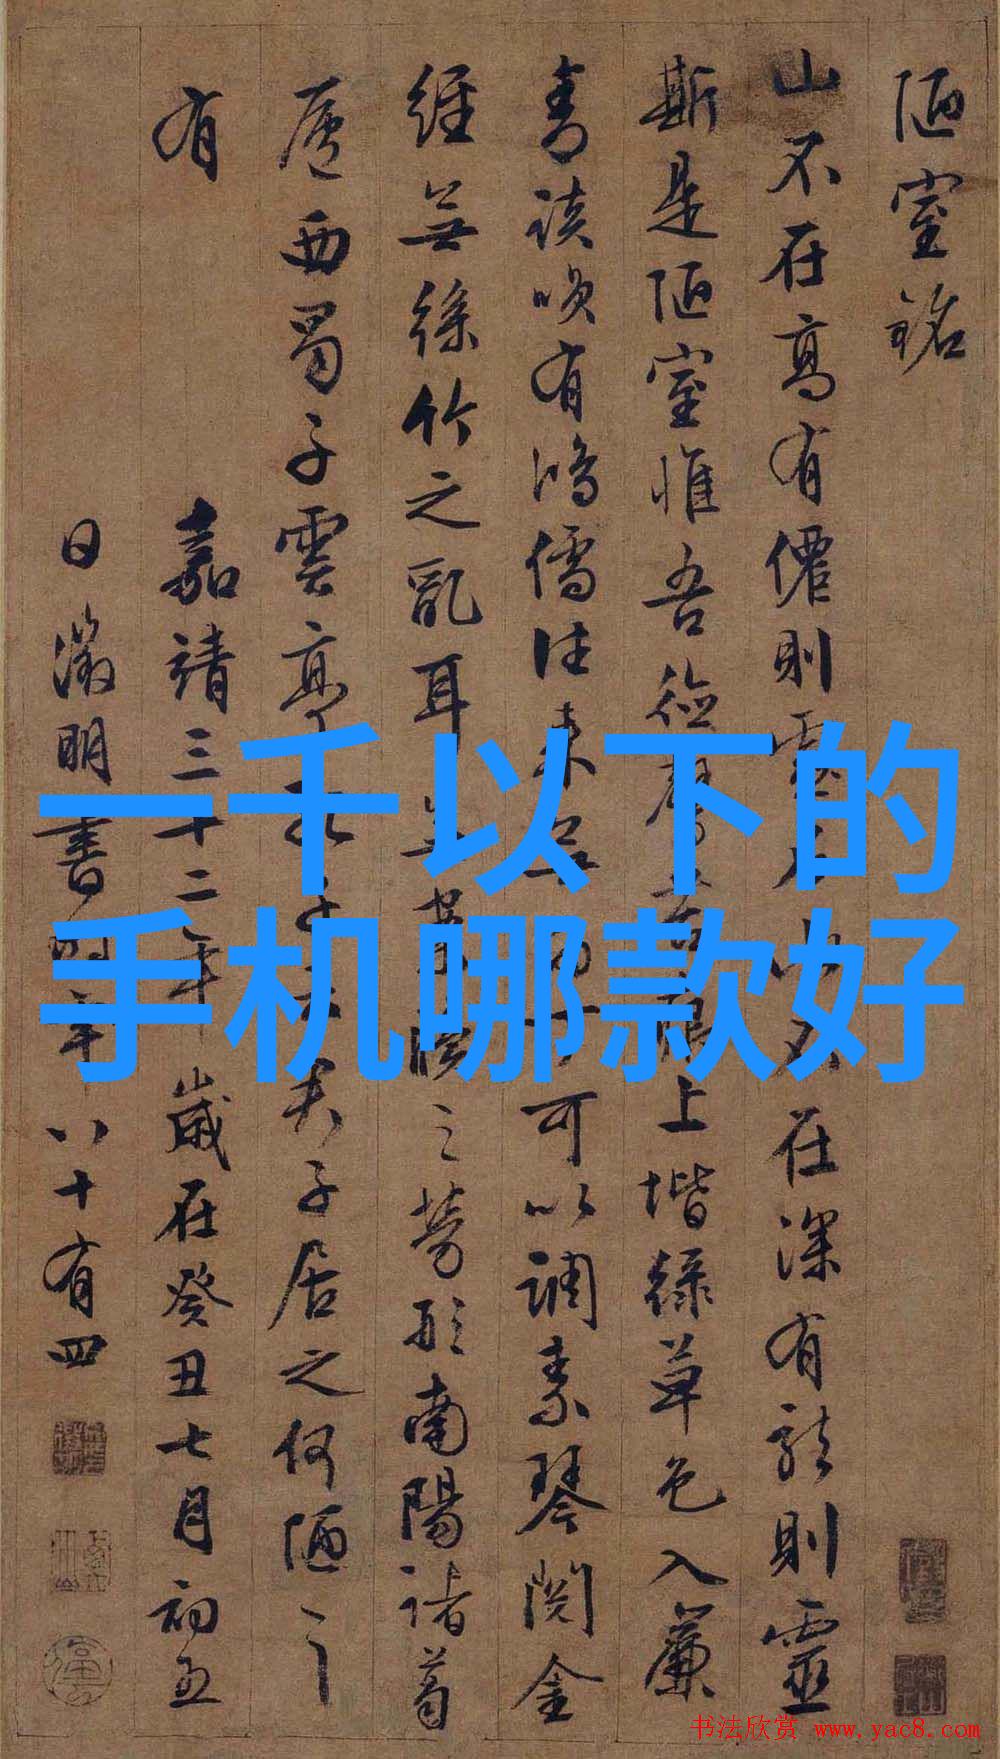 陋室銘
山不在高有僊則名水不在深有龍則靈
斯是陋室惟吾德馨苔痕上堦綠草色入簾
青談咲有鴻儒往來無白丁可以調素琴閱金
經無絲竹之亂耳無案牘之勞形南陽諸葛
廬西蜀子雲亭孔子云君子居之何陋之
有
嘉靖三十二年歲在癸丑七月初五
日徵明書時年八十有四
一千以下的
手机哪款好
书法欣赏 www.yac8.com